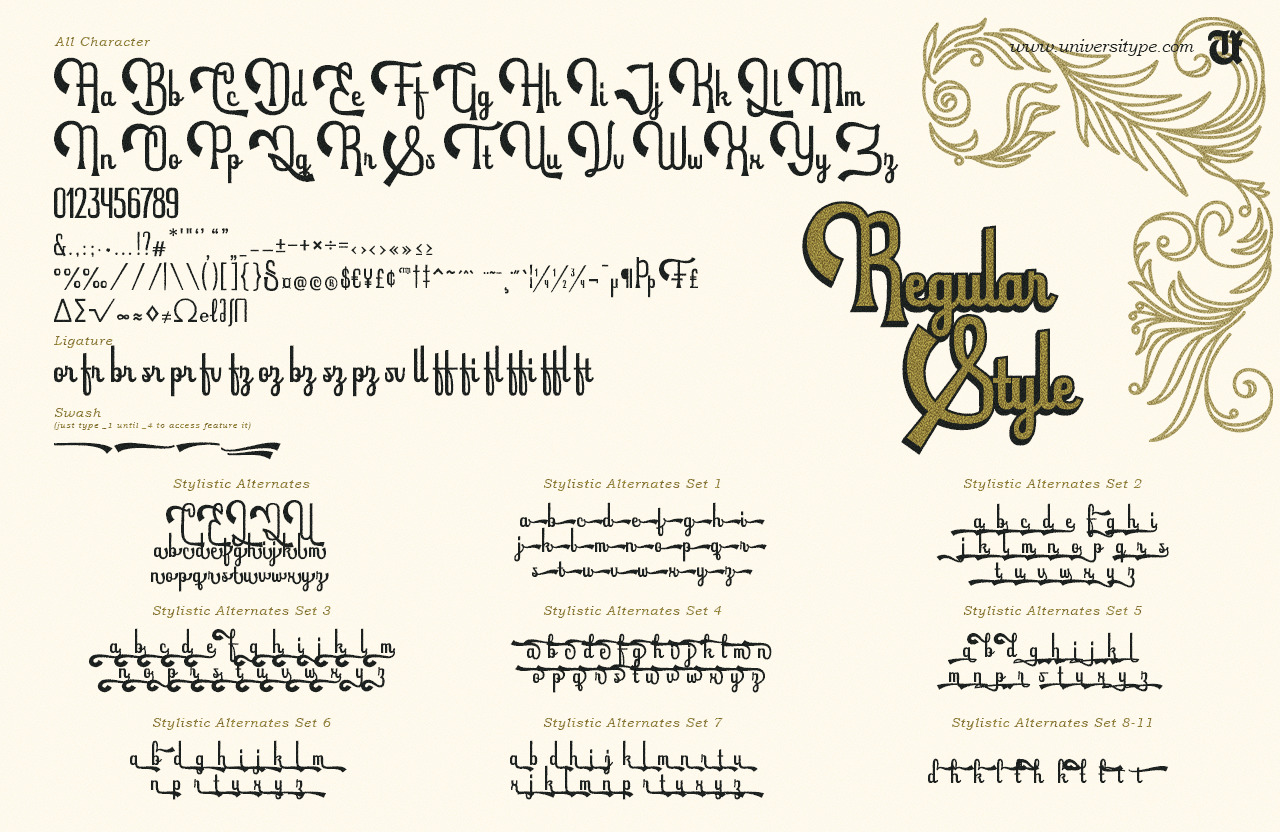 All Character
www.universitype.com
Aa Bb Cc Dd Ee Ff Gg Hh Ii Jj Kk Ll Mm
Nn Oo Pp Qq Rr Ss Tt Uu Vv Ww Xx Yy Zz
0123456789
Regular
Style
Ligature
or fr br sr pr fv fz oz bz sz pz sv ll ff fi fl ffi ffl ft
Swash
(just type _1 until _4 to access feature it)
Stylistic Alternates
Stylistic Alternates Set 1
Stylistic Alternates Set 2
abcdefghijklm
nopqrstuvwxyz
a b c d e f g h i
j k l m n o p q r
s t u v w x y z
a b c d e f g h i
j k l m n o p q r s
t u v w x y z
Stylistic Alternates Set 3
Stylistic Alternates Set 4
Stylistic Alternates Set 5
a b c d e f g h i j k l m
n o p r s t u v w x y z
Stylistic Alternates Set 6
Stylistic Alternates Set 7
Stylistic Alternates Set 8-11
a b d g h i j k l m
n p r t u x y z
a b d h i j k l m n r t u
x j k l m n p r t u x y z